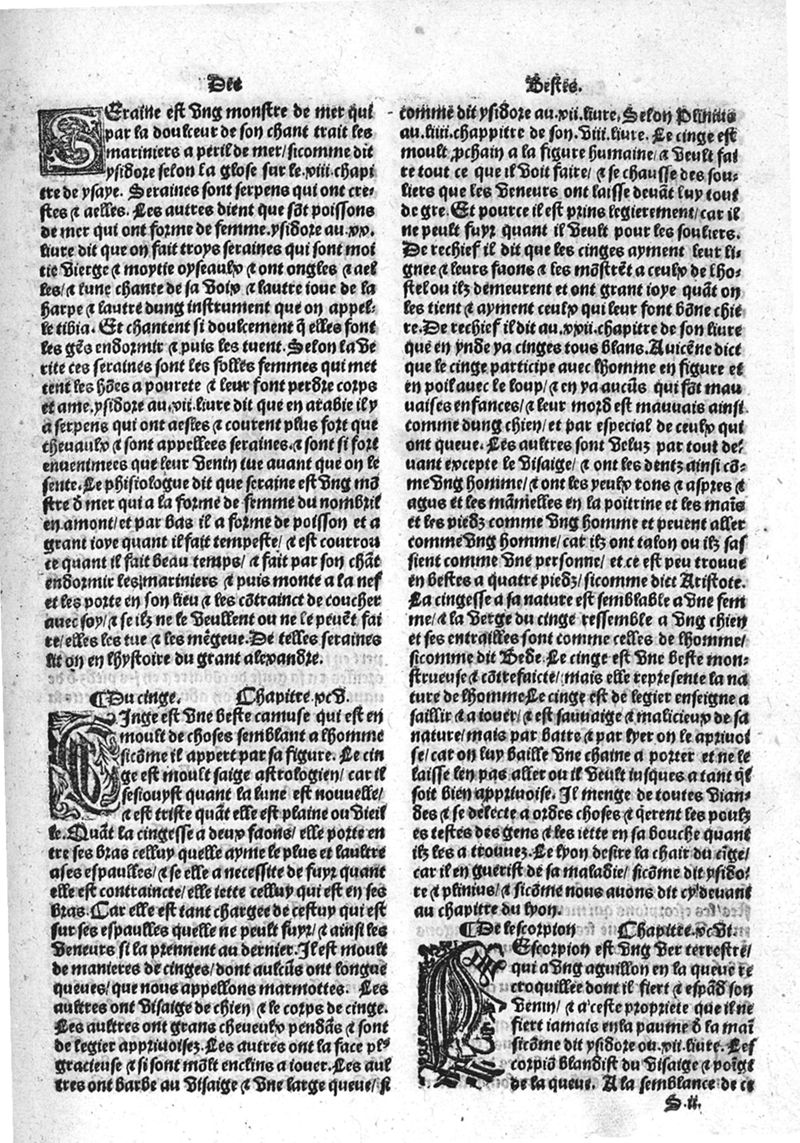 Des
Bestes.
SEraine est vng monstre de mer qui
par la doulceur de son chant trait les
mariniers a peril de mer/sicomme dit
ysidore selon la glose sur le.xiii.chapi
tre de ysaye. Seraines sont serpens qui ont cre-
stes ⁊ aelles. Les autres dient que sõt poissons
de mer qui ont forme de femme.ysidore au.xx.
liure dit que on fait troys seraines qui sont moi
tie vierge ⁊ moytie oyseaulx ⁊ ont ongles ⁊ ael
les/⁊ lune chante de sa voix ⁊ lautre ioue de la
harpe ⁊ lautre dung instrument que on appel-
le tibia. Et chantent si doulcement q̃ elles font
les gẽs endormir ⁊ puis les tuent. Selon la ve
rite ces seraines sont les folles femmes qui met
tent les hões a pourete ⁊ leur font perdre corps
et ame.ysidore au.xii.liure dit que en arabie il y
a serpens qui ont aesles ⁊ courent plus fort que
cheuaulx ⁊ sont appellees seraines.⁊ sont si fort
enuenimees que leur venin tue auant que on le
sente. Le phisiologue dit que seraine est vng mõ
stre d̃ mer qui a la forme de femme du nombril
en amont/et par bas il a forme de poisson et a
grant ioye quant il fait tempeste/⁊ est courrou
ce quant il fait beau temps/⁊ fait par son chãt
endormir les mariniers ⁊ puis monte a la nef
et les porte en son lieu ⁊ les cõtrainct de coucher
auec soy/⁊ se ilz ne le veullent ou ne le peuẽt fai
re/elles les tue ⁊ les mẽgeue. De telles seraines
lit on en lhystoire du grant alexandre.
¶Du cinge. Chapitre.xcv.
CInge est vne beste camuse qui est en
moult de choses semblant a lhomme
sicõme il appert par sa figure. Le cin
ge est moult saige astrologien/ car il
sesiouyst quant la lune est nouuelle/
⁊ est triste quãt elle est plaine ou vieil
le. Quãt la cingesse a deux faons/ elle porte en
tre ses bras celluy quelle ayme le plus et laultre
a ses espaulles/⁊ se elle a necessite de fuyr quant
elle est contraincte/elle iette celluy qui est en ses
bras. Car elle est tant chargee de cestuy qui est
sur ses espaulles quelle ne peult fuyr/⁊ ainsi les
veneurs si la prennent au dernier. Il est moult
de manieres de cinges/dont aulcũs ont longue
queues/que nous appellons marmottes. Les
aultres ont visaige de chien ⁊ le corps de cinge.
Les aultres ont grans cheueulx pendãs ⁊ sont
de legier appriuoisez. Les autres ont la face plꝰ
gracieuse ⁊ si sont mõlt enclins a iouer. Les aul
tres ont barbe au visaige ⁊ vne large queue/ si
comme dit ysidore au.xii.liure. Selon Plinius
au.liiii.chappitre de son.viii.liure. Le cinge est
moult ꝓchain a la figure humaine/⁊ veult fai
re tout ce que il voit faire/⁊ se chausse des sou-
liers que les veneurs ont laisse deuãt luy tout
de gre. Et pource il est prins legierement/car il
ne peult fuyr quant il veult pour les souliers.
De rechief il dit que les cinges ayment leur li-
gnee ⁊ leurs faons ⁊ les mõstrẽt a ceulx de lho-
stel ou ilz demeurent et ont grant ioye quãt on
les tient ⁊ ayment ceulx qui leur font bõne chie
re. De rechief il dit au.xxii.chapitre de son liure
que en ynde ya cinges tous blans. Auicẽne dict
que le cinge participe auec lhomme en figure et
en poil auec le loup/⁊ en ya aucũs qui sõt mau
uaises enfances/⁊ leur mord est mauuais ainsi
comme dung chien/et par especial de ceulx qui
ont queue. Les aultres sont veluz par tout de-
uant excepte le visaige/⁊ ont les dentz ainsi cõ-
me vng homme/⁊ ont les yeulx rons ⁊ aspres ⁊
agus et les mãmelles en la poitrine et les maĩs
et les piedz comme vng homme et peuent aller
comme vng homme/ car ilz ont talon ou ilz sas
sient comme vne personne/ et ce est peu trouue
en bestes a quatre piedz/sicomme dict Aristote.
La cingesse a sa nature est semblable a vne fem
me/⁊ la verge du cinge ressemble a vng chien
et ses entrailles sont comme celles de lhomme/
sicomme dit Bede. Le cinge est vne beste mon-
strueuse ⁊ cõtrefaicte/mais elle represente la na
ture de lhomme Le cinge est de legier enseigne a
saillir ⁊ a iouer/⁊ est sauuaige ⁊ malicieux de sa
nature/mais par batre ⁊ par lyer on le apriuoi
se/car on luy baille vne chaine a porter et ne le
laisse len pas aller ou il veult iusques a tant q̃l
soit bien appriuoise. Il menge de toutes vian-
des ⁊ se delecte a ordes choses ⁊ q̃rent les poulz
es testes des gens ⁊ les iette en sa bouche quant
ilz les a trouuez. Le lyon desire la chair du cĩge/
car il en guerist de sa maladie/ sicõme dit ysido-
re ⁊ plinius/⁊ sicõme nous auons dit cy deuant
au chapitre du lyon.
¶De lescorpion Chapitre.xcvi.
LEscorpion est vng ver terrestre/
qui a vng aguillon en la queue re
croquillee dont il fiert ⁊ espãd son
venin/ ⁊ a ceste propriete que il ne
fiert iamais en la paume d̃ la maĩ
sicõme dit ysidore ou.xii.liure. Lef
corpiõ blandist du visaige ⁊ poĩgt
de la queue. A la semblance de ce
S.ii.